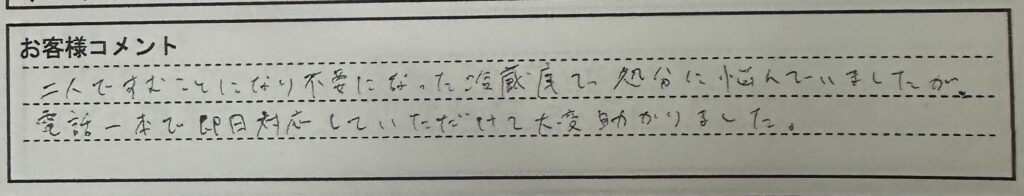 お客様コメント
二人ですむことになり不要になった冷蔵庫で処分に悩んでいましたが、
電話一本で即日対応していただけて大変助かりました。